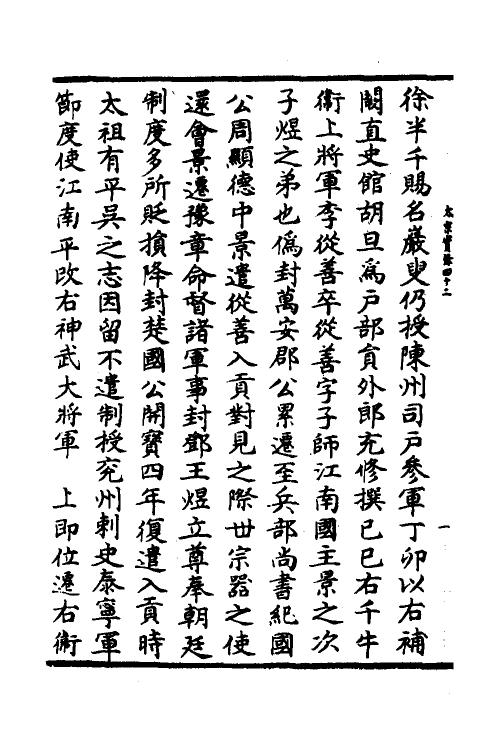 徐半千賜名巖叟仍授陳州司戶參軍丁卯以右補
闕直史館胡旦為戶部貟外郎充修撰己巳右千牛
衞上將軍李從善卒從善字子師江南國主景之次
子煜之弟也僞封萬安郡公累遷至兵部尚書紀國
公周顯德中景遣從善入貢對見之際世宗器之使
還會景遷豫章命督諸軍事封鄧王煜立尊奉朝廷
制度多所貶損降封楚國公開寶四年復遣入貢時
太祖有平吳之志因留不遣制授兖州刺史泰寧軍
節度使江南平改右神武大將軍　上即位遷右衞
太宗實錄四十二
一